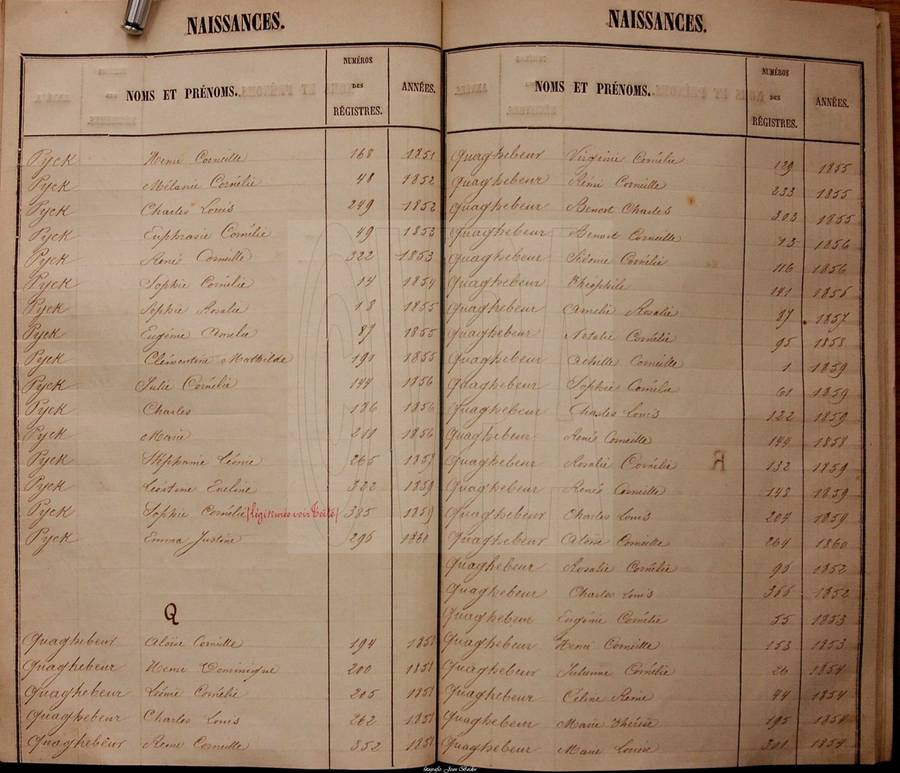 NAISSANCES.
NOMS ET PRÉNOMS. NUMÉROS DES RÉGISTRES. ANNÉES.
Pyck Henri Corneille 168 1851
Pyck Mélanie Cornélie 48 1852
Pyck Charles Louis 249 1852
Pyck Euphrasie Cornélie 49 1853
Pyck René Corneille 322 1853
Pyck Sophie Cornélie 14 1854
Pyck Sophie Rosalie 18 1855
Pyck Eugénie 87 1855
Pyck Clémentine Mathilde 191 1855
Pyck Julie Cornélie 144 1856
Pyck Charles 186 1856
Pyck Marie 211 1856
Pyck Stéphanie Léonie 265 1857
Pyck Léontine Eveline 322 1859
Pyck Sophie Cornélie (légitimée voir) 385 1859
Pyck Emma Justine 295 1860
Q
Quaghebeur Aloïse Corneille 194 1851
Quaghebeur Henri Dominique 200 1851
Quaghebeur Léonie Cornélie 205 1851
Quaghebeur Charles Louis 262 1851
Quaghebeur Rémi Corneille 352 1851
NAISSANCES.
NOMS ET PRÉNOMS. NUMÉROS DES RÉGISTRES. ANNÉES.
Quaghebeur Virginie Cornélie 129 1855
Quaghebeur Rémi Corneille 233 1855
Quaghebeur Benoit Charles 303 1855
Quaghebeur Benoit Corneille 13 1856
Quaghebeur Sidonie Cornélie 116 1856
Quaghebeur Théophile 141 1856
Quaghebeur Amelie Rosalie 87 1857
Quaghebeur Natalie Cornélie 95 1858
Quaghebeur Achille Corneille 1 1859
Quaghebeur Sophie Cornélie 61 1859
Quaghebeur Charles Louis 122 1859
Quaghebeur René Corneille 149 1858
Quaghebeur Rosalie Cornélie R 132 1859
Quaghebeur René Corneille 148 1859
Quaghebeur Charles Louis 207 1859
Quaghebeur Aloïse Corneille 264 1860
Quaghebeur Rosalie Cornélie 95 1852
Quaghebeur Charles Louis 366 1852
Quaghebeur Eugénie Cornélie 55 1853
Quaghebeur Henri Corneille 153 1853
Quaghebeur Julienne Cornélie 26 1854
Quaghebeur Céline Reine 44 1854
Quaghebeur Marie Thérèse 195 1854
Quaghebeur Marie Louise 301 1854